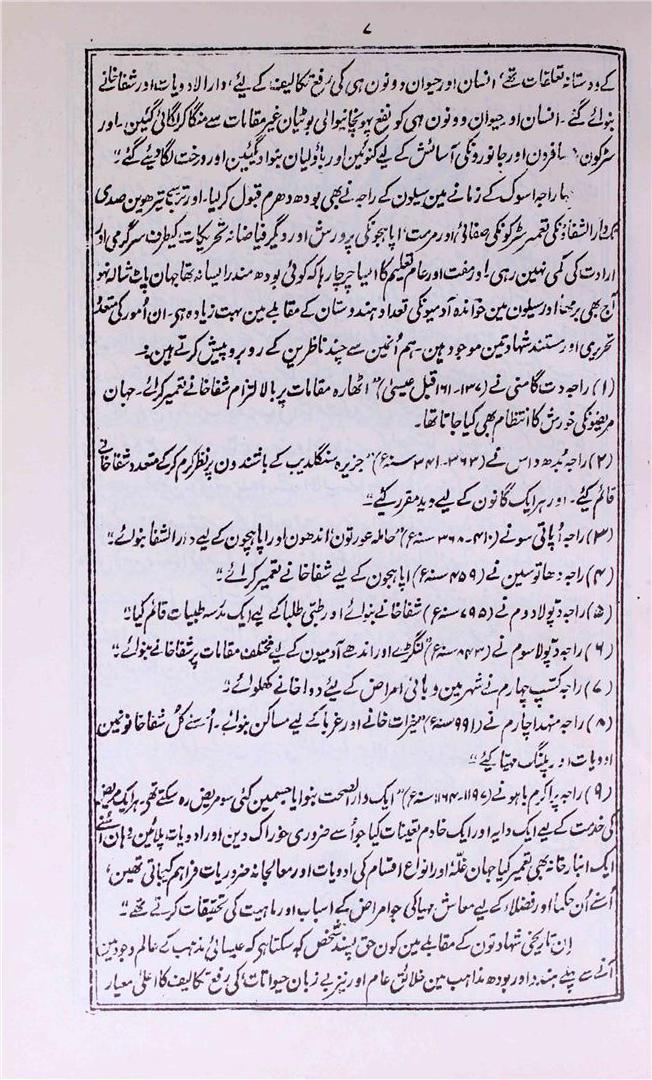 ۷
کے دوستانہ تعلقات تھے، انسان اور حیوان دونون ہی کی رفع تکالیف کے لیے، دارالادویات اور شفاخانے
بنوائے گئے۔ انسان اور حیوان دونون ہی کو نفع پہونچانیوالی بوٹیان غیر مقامات سے منگا کر لگائی گئین۔ اور
سڑکون مسافرون اور جانورونکی آسائش کے لیے کنوئین اور باؤلیان بنوا دیگیئین اور درخت لگا دیئے گئے"
مہاراجہ اسوک کے زمانے مین سیلون کے راجہ نے بھی بودھ دھرم قبول کر لیا۔ اور ترسبے تیرھوین صدی
تک دارالشفاؤنکی تعمیر سڑکونکی صفائی اور مرمت، اپاہجونکی پرورش اور دیگر فیاضانہ تحریکات کیطرف سرگرمی اور
ارادت کی کمی نہین رہی! اور مفت اور عام تعلیم کا ایسا چرچا رہا کہ کوئی بودھ مندر ایسا نہ تھا جہان پاٹ شالہ نہو
آج بھی برھما اور سیلون مین خواندہ آدمیونکی تعداد ہندوستان کے مقابلے مین بہت زیادہ ہی۔ ان اُمور کی متعدد
تحریری اور مستند شہادتین موجود ہین۔ ہم اُنمین سے چند ناظرین کے روبرو پیش کرتے ہین:۔
(۱) راجہ دت گامنی نے (۱۳۷۔۱۶۱ قبل عیسیٰ) "اٹھارہ مقامات پر بالالتزام شفاخانے تعمیر کرائے۔ جہان
مریضونکی خورش کا انتظام بھی کیا جاتا تھا۔
(۲) راجہ بُدھ داس نے (۳۶۲۔۳۴۱ سنہء) "جزیرہ سنگلدیپ کے باشندون پر نظر کرم کر کے متعدد شفاخانے
قائم کیئے۔ اور ہر ایک گانون کے لیے وید مقرر کیئے"۔
(۳) راجہ اُپاتی سو نے (۴۱۰۔۳۶۸ سنہء) "حاملہ عورتون اندھون اور اپاہجون کے لیے دارالشفا بنوائے"
(۴) راجہ دھاتوسین نے (۴۵۹ سنہء) اپاہجون کے لیے شفاخانے تعمیر کرائے"
(۵) راجہ دپولا دوم نے (۷۹۵ سنہء) شفاخانے بنوائے اور طبی طلبا کے لیے ایک مدرسہ طبیات قائم کیا"
(۶) راجہ دپولا سوم نے (۸۴۳ سنہء) "لنگڑے اور اندھے آدمیون کے لیے مختلف مقامات پر شفاخانے بنوائے"
(۷) راجہ کسپ چہارم نے شہر مین وبائی امراض کے لیئے دواخانے کھلوائے"
(۸) راجہ مہندا چارم نے (۹۹۱ سنہء) "خیرات خانے اور غربا کے لیے مساکن بنوائے۔ اُسنے کل شفاخانونمین
ادویات اور پلنگ مہیا کیئے"
(۹) راجہ پراکرم باہو نے (۱۱۹۷۔۱۱۶۴ سنہء) "ایک دارالصحت بنوایا جسمین کئی سو مریض رہ سکتے تھے۔ ہر ایک مریض
کی خدمت کے لیے ایک دایہ اور ایک خادم تعینات کیا جو اُسے ضروری خوراک دین اور ادویات پلائین وہان اُسنے
ایک انبار خانہ بھی تعمیر کیا جہان غلہ اور انواع اقسام کی ادویات اور معالجانہ ضروریات فراہم کیجاتی تھین،
اُسنے اُن حکما اور فضلاء کے لیے معاش مہیا کی جو امراض کے اسباب اور ماہیت کی تحقیقات کرتے تھے"
ان تاریخی شہادتون کے مقابلے مین کون حق پسند شخص کہہ سکتا ہی کہ عیسائی مذہب کے عالم وجود مین
آنے سے پہلے ہندو اور بودھ مذاہب مین خلائق عام اور نیز بے زبان حیوانات کی رفع تکالیف کا اعلیٰ معیار